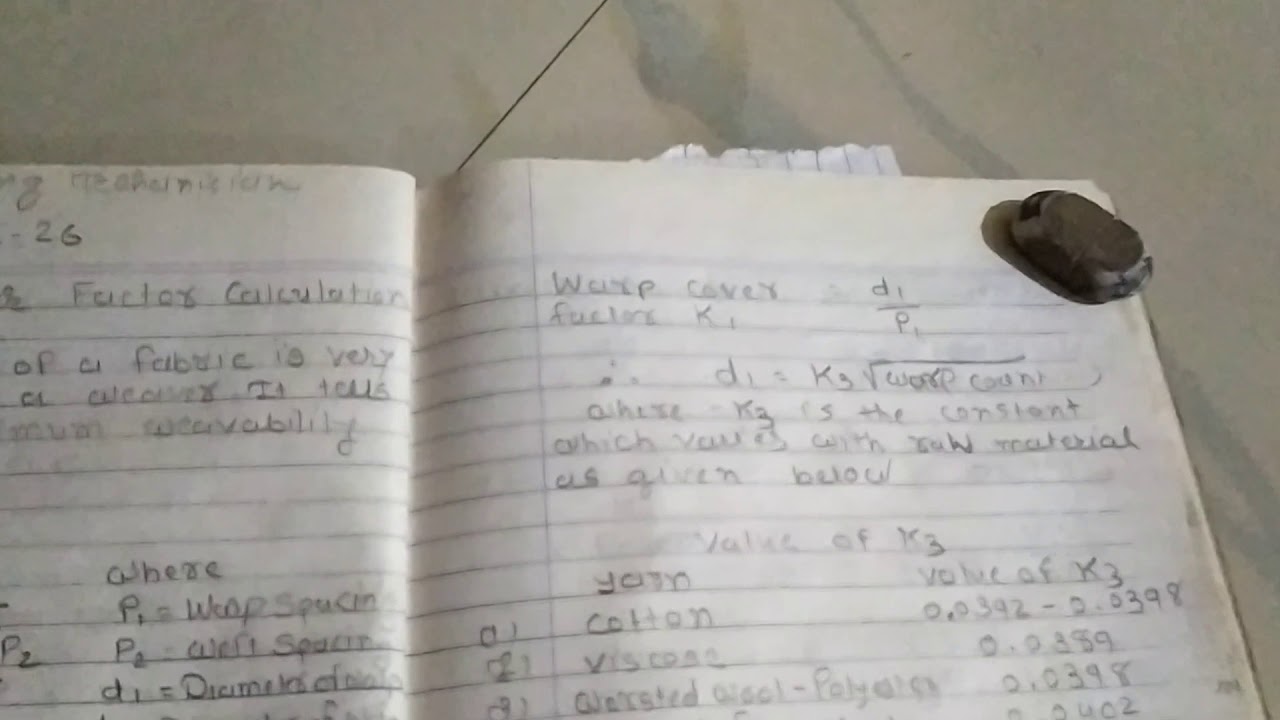 ng Mechanism
- 26
Factor Calculation
of a fabric is very
a weaver. It tells
mum weavability
where
P₁ = Wrap Spacin
P₂ P₂ = Weft Spacin
d₁ = Diameter of
Warp cover = d₁
factor K₁ P₁
∴ d₁ = K₃ √warp count,
where K₃ is the constant
which varies with raw material
as given below
Value of K₃
yarn value of K₃
a) cotton 0.0392 - 0.0398
2) viscose 0.0389
3) worsted wool - Polyester 0.0398
0.0402